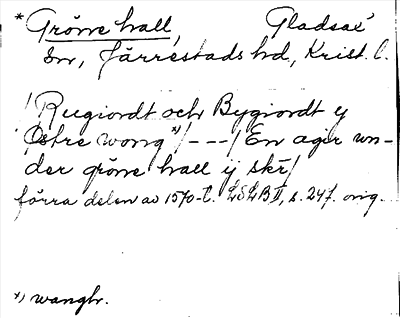 * Gröne hall, Gladsax'
sn, Järrestads hd, Krist. l.
/Rugiordt och Bygiordt y
Østre wong *)/---/En ager un-
der gröne hall ij skr/
förra delen av 1570-t. LSLB II, s. 247. orig.
*) wangh.